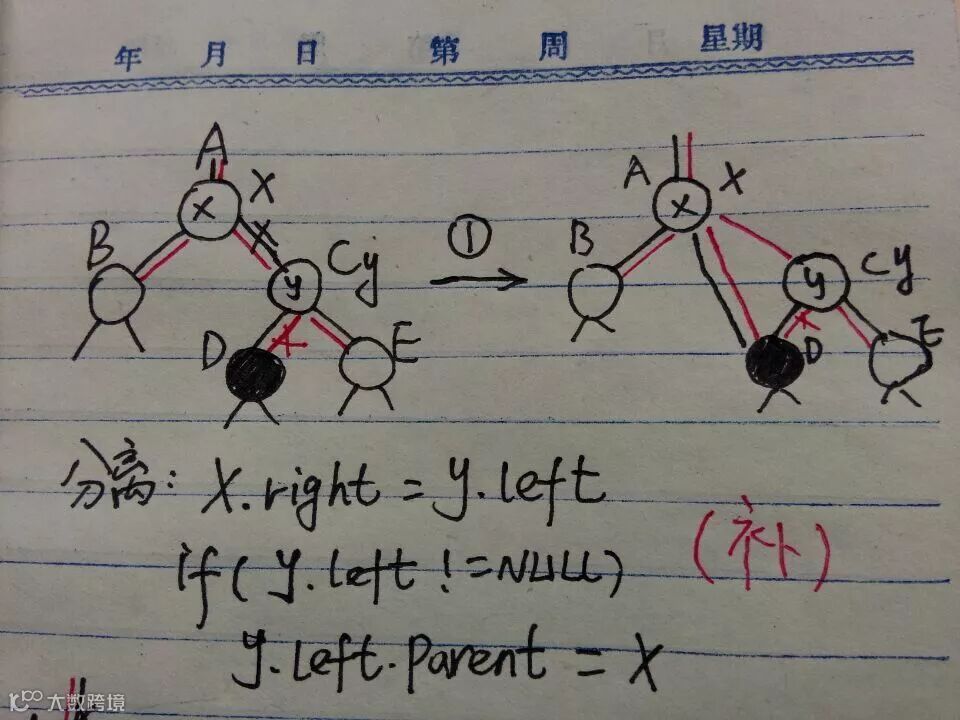 年 月 日 第 周 星期
A A
X X X X
B X B
y Cy ① y Cy
D E D E
分离: X.right = y.left
if(y.left != NULL) (补)
y.left.parent = X
大数跨境